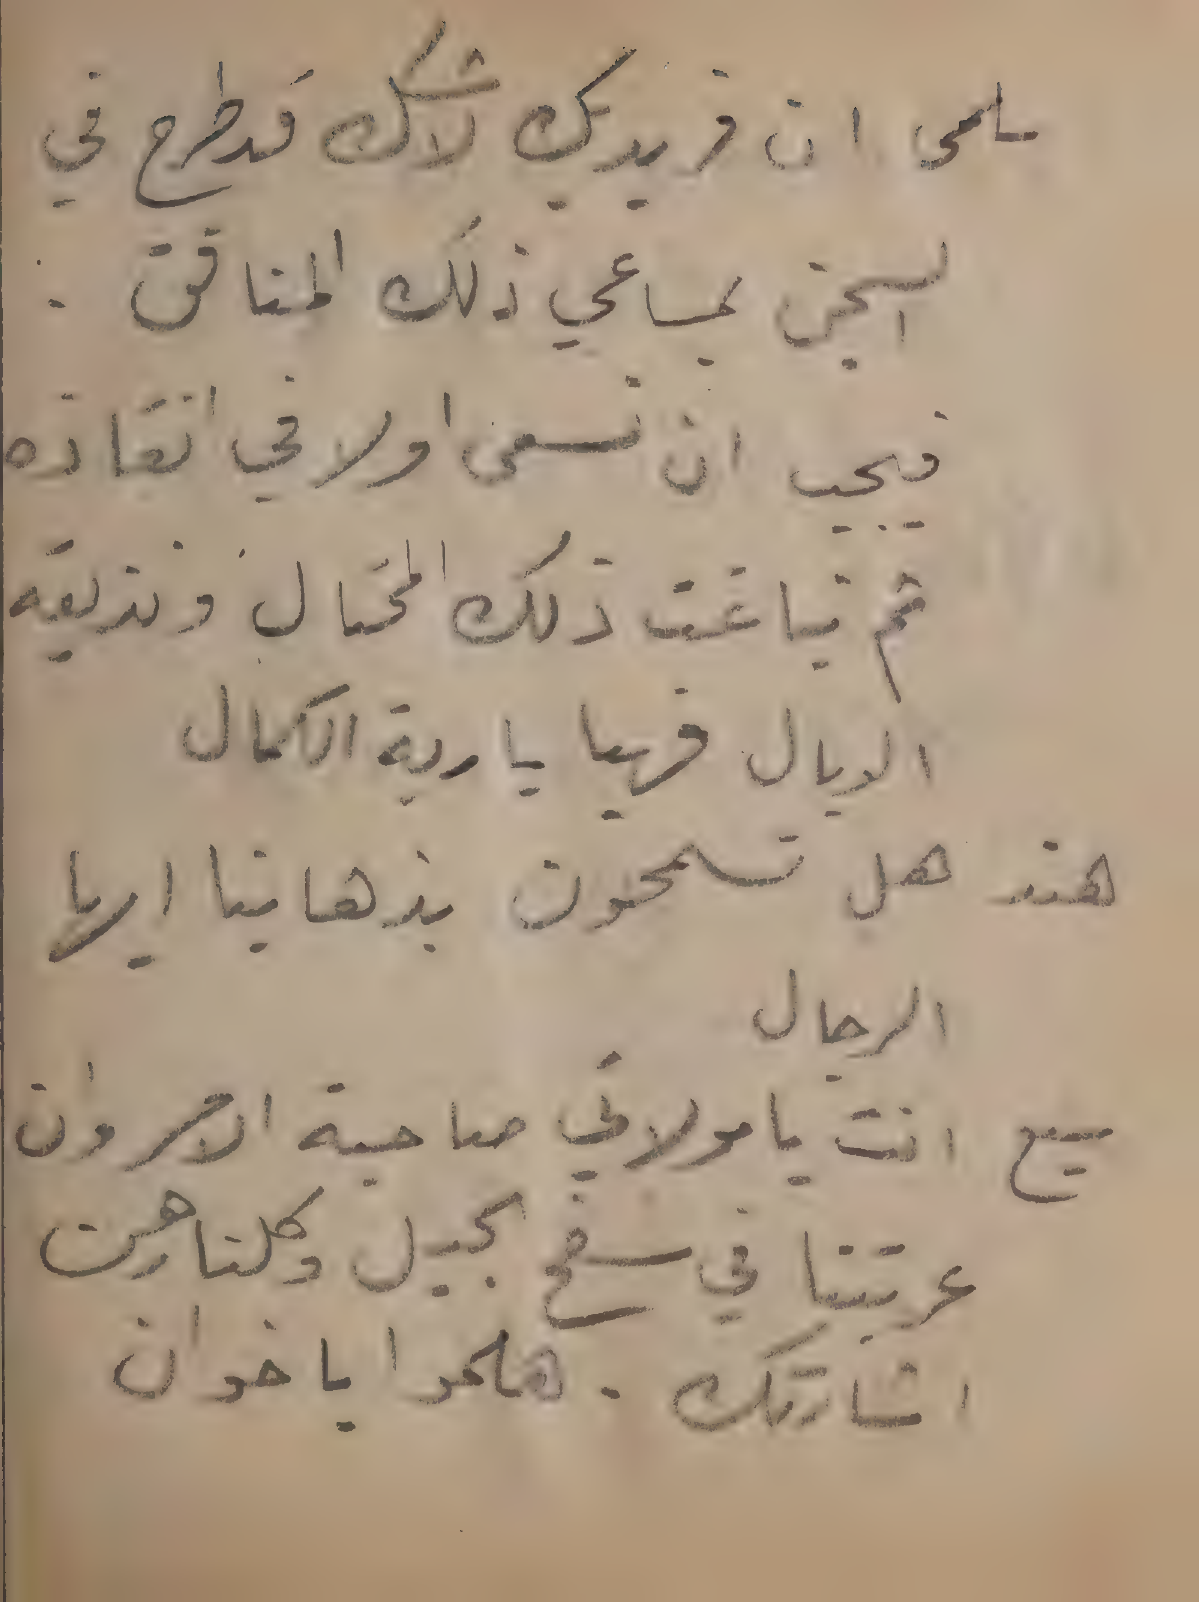 سلمى ان فريديك لاشك قد طرح في
السجن بمساعي ذلك المنافق .
فيجب ان نسعى اولا في انقاذه
ثم نباغت ذلك المحتال ونذيقه
الوبال فهيا يا ربة الكمال
هند هل تسمحون بذهابنا ايها
الرجال
سبع انت يا مولاتي صاحبة الامر وان
عربتنا في سفح الجبل وكلنا رهن
اشارتك . هلموا يا خوان